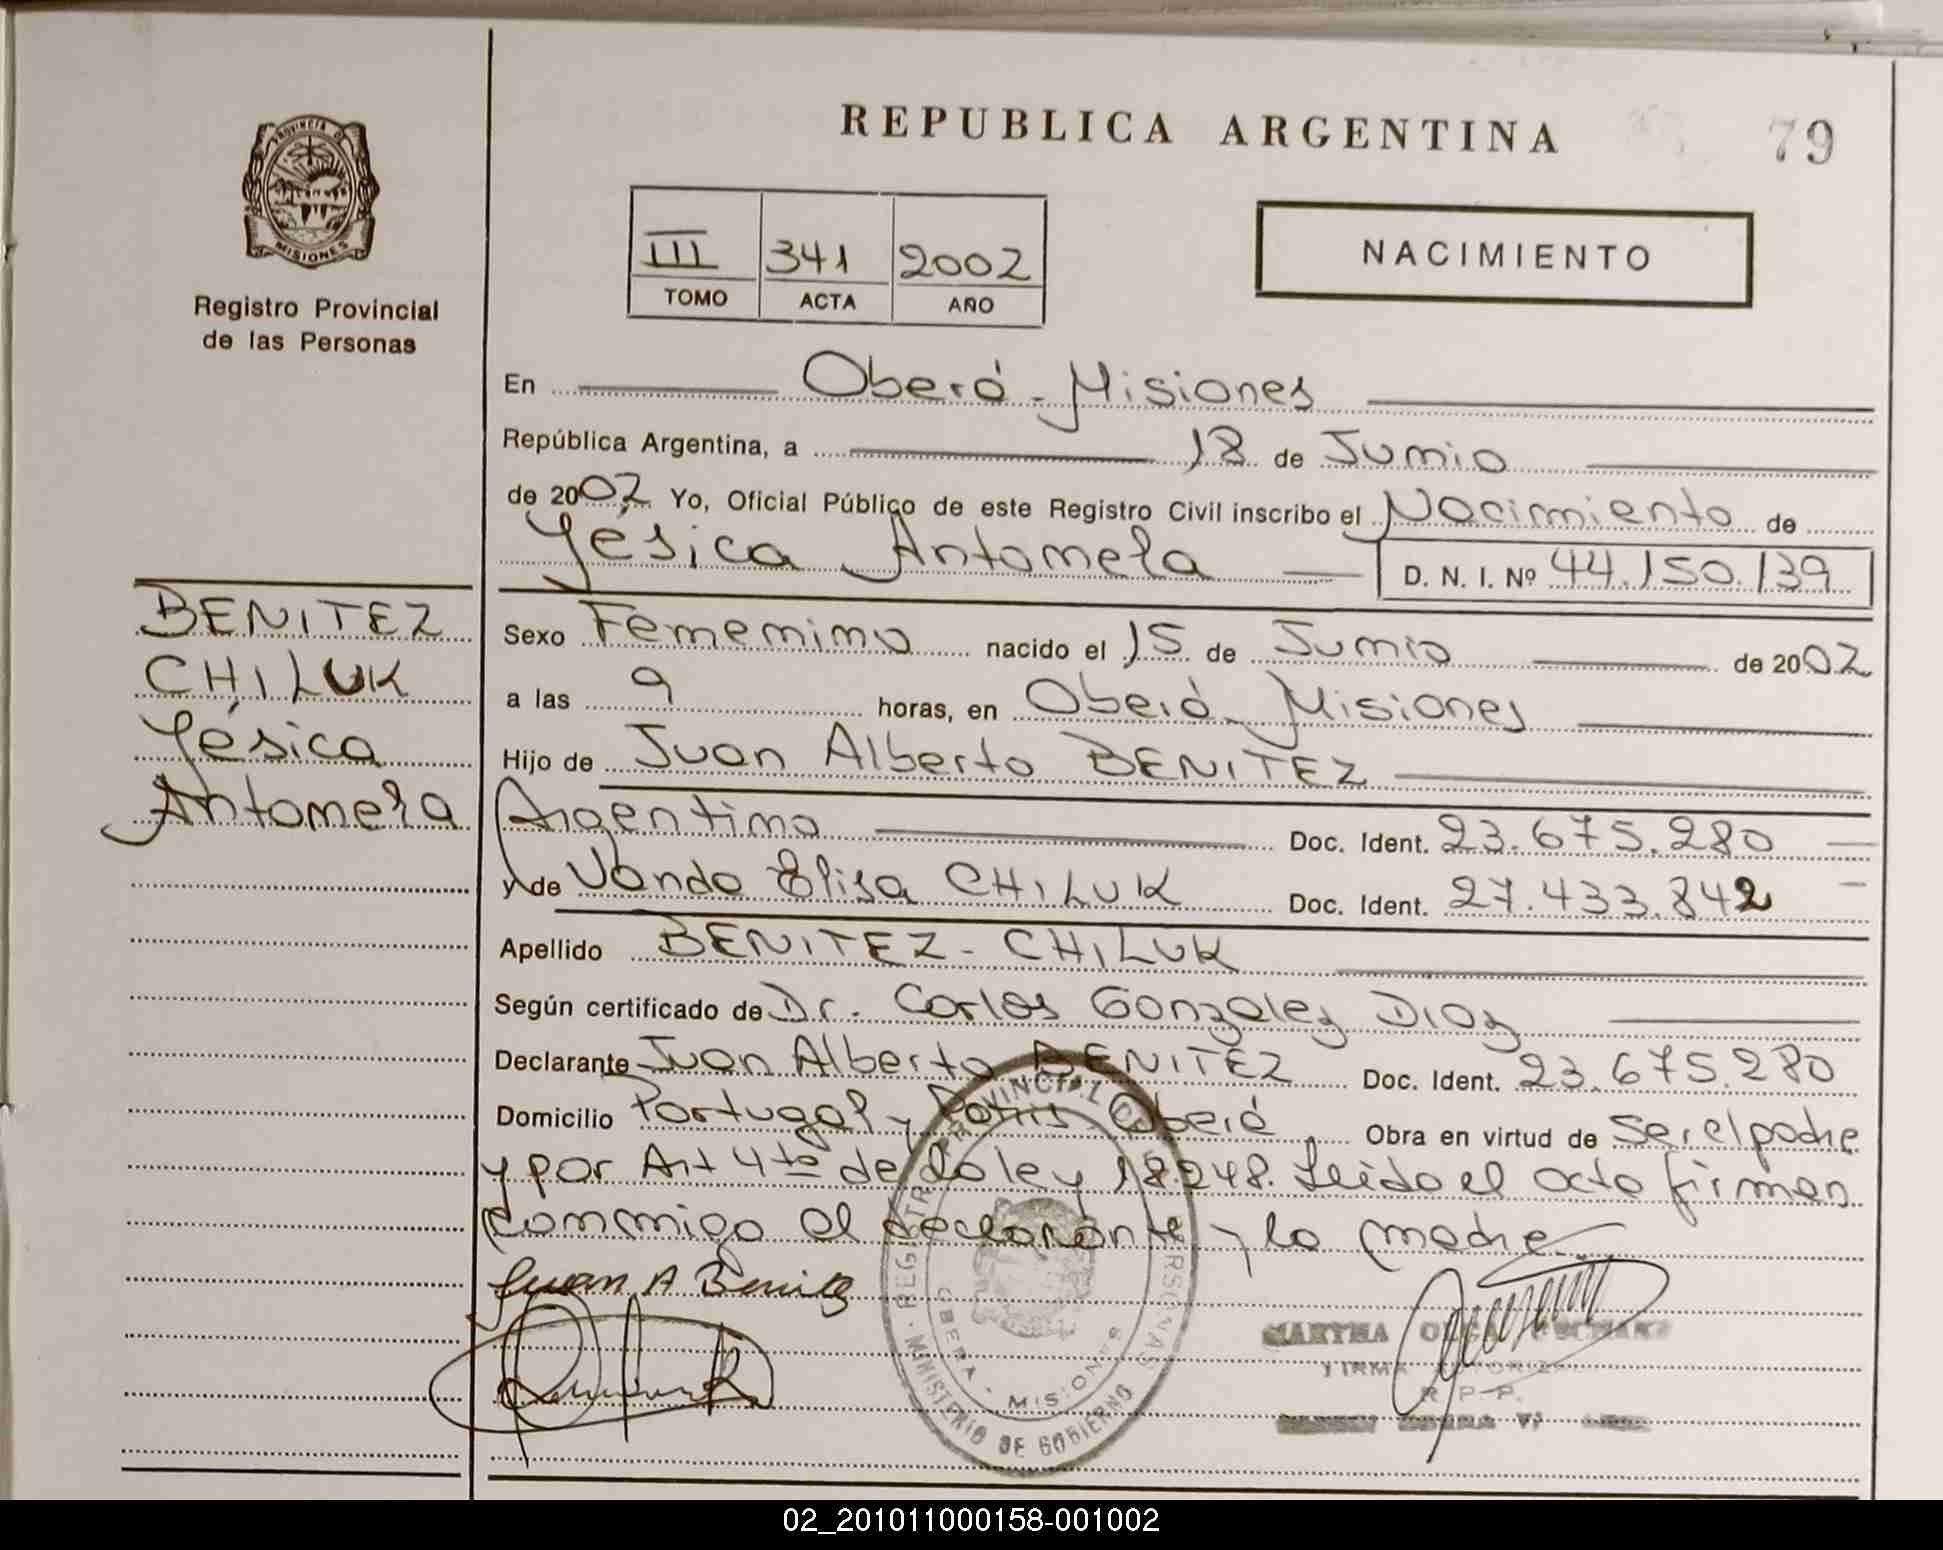 REPUBLICA ARGENTINA
79
PROVINCIA DE
MISIONES
Registro Provincial
de las Personas
III 341 2002
TOMO ACTA AÑO
NACIMIENTO
En Oberá - Misiones
República Argentina, a 18 de Junio
de 2002 Yo, Oficial Público de este Registro Civil inscribo el Nacimiento de
Yésica Antonela D. N. I. Nº 44.150.139
BENITEZ
CHILUK
Yésica
Antonela
Sexo Femenino nacido el 15 de Junio de 2002
a las 9 horas, en Oberá - Misiones
Hijo de Juan Alberto BENITEZ
Argentino Doc. Ident. 23.675.280
y de Vanda Elisa CHILUK Doc. Ident. 27.433.842
Apellido BENITEZ - CHILUK
Según certificado de Dr. Carlos Gonzalez Diaz
Declarante Juan Alberto BENITEZ Doc. Ident. 23.675.280
Domicilio Portugal y Paris - Oberá Obra en virtud de Ser el padre
y por Art 4to de la ley 18.248. Leido el acta firman
conmigo el declarante y la madre.
Juan A Benitez
REGISTRO PROVINCIAL DE PERSONAS
MINISTERIO DE GOBIERNO
OBERA - MISIONES
MARTHA OLGA
FIRMA
R. P. P.
02_201011000158-001002